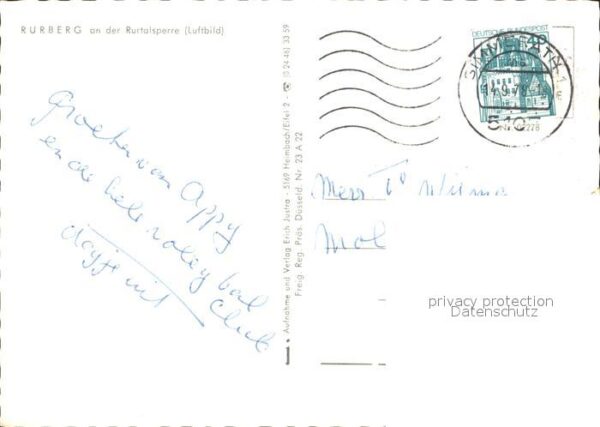 RURBERG an der Rurtalsperre (Luftbild)
Groeten van Appy
en de hele volley bal
club
Aufnahme und Verlag Erich Justra - 5169 Heimbach/Eifel 2 - (0 24 46) 33 59
Freig. Reg. Präs. Düsseld. Nr. 23 A 22
DEUTSCHE BUNDESPOST
40
SIMMERATH 1
14.9.78
5107
Wilma
Mol
privacy protection
Datenschutz